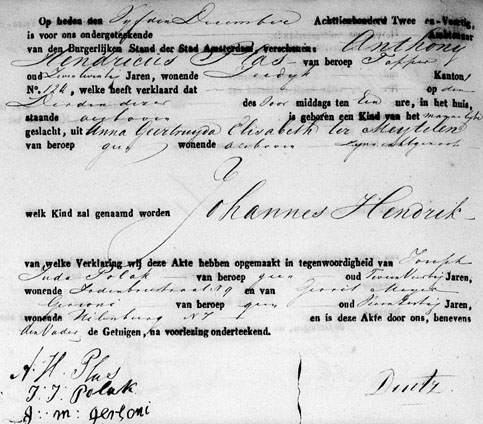 Op heden den Vyfden December Achttienhonderd Twee en-Veertig,
is voor ons ondergeteekende Ambtenaar
van den Burgerlijken Stand der Stad Amsterdam, verschenen Anthony
Hendricus Plas van beroep Tapper
oud Jaren, wonende Zeedyk Kanton
N°. 124, welke heeft verklaard dat op den
Derden dezer des Voor middags ten Een ure, in het huis,
staande is geboren een Kind van het mannelyke
geslacht, uit Anna Geertruyda Elisabeth ter Meulelen
van beroep geen wonende
welk Kind zal genaamd worden Johannes Hendrik
van welke Verklaring wij deze Akte hebben opgemaakt in tegenwoordigheid van Joseph
Juda Polak van beroep geen oud Jaren,
wonende Jodenbreestraat 19 en van Gerrit
Gersoni van beroep geen oud Jaren,
wonende N 7 en is deze Akte door ons, benevens
den Vader de Getuigen, na voorlezing onderteekend.
A. H. Plas
J: J: Polak
g: m: gersoni
Deutz